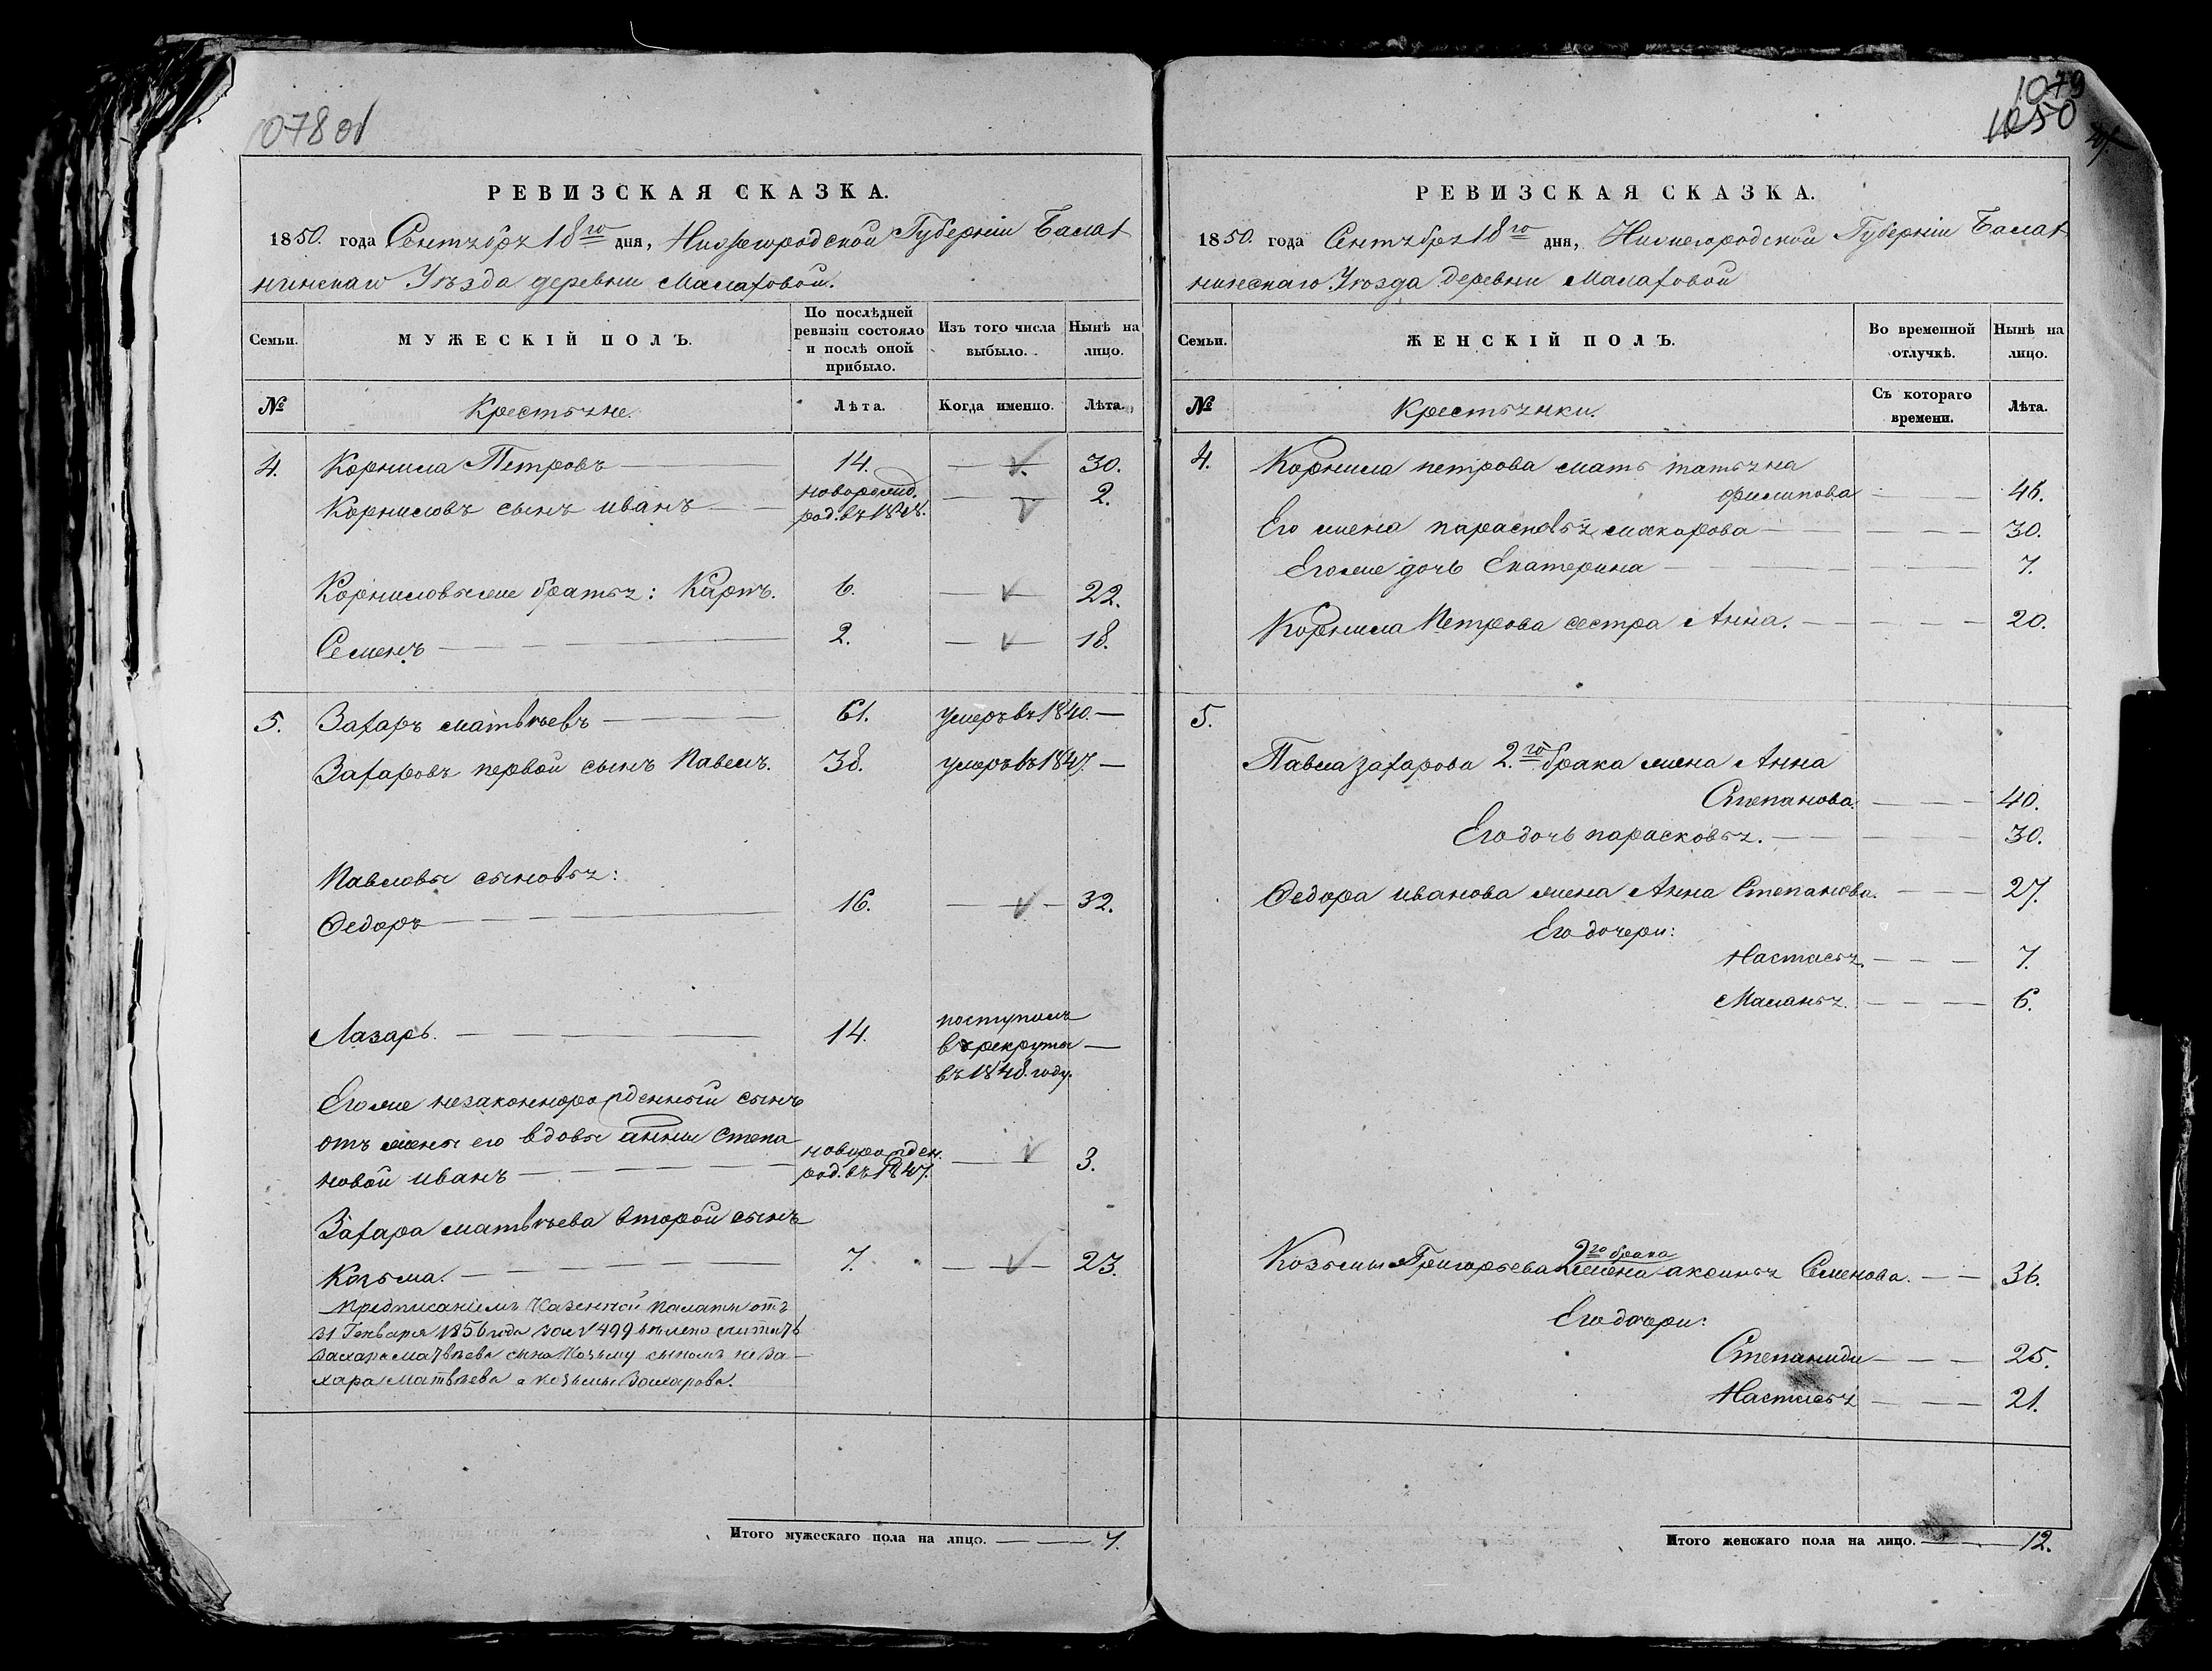 1078 об
РЕВИЗСКАЯ СКАЗКА.
1850. года Сентября 18го дня, Нижегородской Губерніи Балах
нинскаго Уѣзда деревни Малаховой.
Семьи.
МУЖЕСКІЙ ПОЛЪ.
По послѣдней ревизіи состояло и послѣ оной прибыло.
Изъ того числа выбыло.
Нынѣ на лицо.
№
Крестьяне.
Лѣта.
Когда именно.
Лѣта.
4. Корнила Петровъ — 14. — 30.
Корниловъ сынъ иванъ — новорожд. род. въ 1848. — 2.
Корниловыже братья: Карпъ. 6. — 22.
Семенъ — 2. — 18.
5. Захаръ матвѣевъ — 61. умеръ въ 1840. —
Захаровъ первой сынъ Павелъ. 38. умеръ въ 1847. —
Павловы сыновья:
Ѳедоръ — 16. — 32.
Лазарь. — 14. поступилъ
въ рекруты —
въ 1848. году.
Егоже незаконнорожденный сынъ
отъ жены его вдовы анны Степа
новой иванъ — новорожден. род. въ 1847. — 3.
Захара матвѣева второй сынъ
Козьма. — 7. — 23.
Предписаніемъ Казенной палаты отъ
31 Генваря 1856 года за № 499 велено считать
Захара Матвѣева сына Козьму сыномъ не За-
хара Матвѣева а козьмы Захарова.
Итого мужескаго пола на лицо. — 7.
1079
1050
РЕВИЗСКАЯ СКАЗКА.
1850. года Сентября 18го дня, Нижегородской Губерніи Балах
нинскаго Уѣзда деревни Малаховой
Семьи.
ЖЕНСКІЙ ПОЛЪ.
Во временной отлучкѣ.
Нынѣ на лицо.
№
Крестьянки.
Съ котораго времени.
Лѣта.
4. Корнила петрова мать татьяна
филипова — 46.
Его жена парасковья макарова — 30.
Егоже дочь Екатерина — 7.
Корнила Петрова сестра Анна. — 20.
5.
Павла захарова 2.го брака жена Анна
Степанова. — 40.
Его дочь парасковья. — 30.
Ѳедора иванова жена Анна Степанова. — 27.
Его дочери:
Настасья. — 7.
Маланья. — 6.
2го брака
Козьмы Григорьева жена аксинья Семенова. — 36.
Его дочери:
Степанида — 25.
Настасья — 21.
Итого женскаго пола на лицо. — 12.